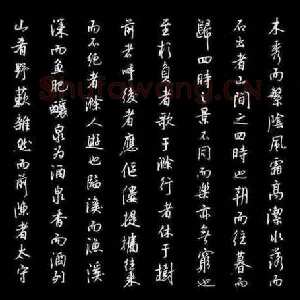 木秀而繁陰風霜高潔水落而
石出者山間之四時也朝而往暮而
歸四時之景不同而樂亦無窮也
至於負者歌于滁行者休于樹
前者呼後者應傴僂提攜往來
而不絕者滁人遊也臨溪而漁溪
深而魚肥釀泉為酒泉香而酒列
山肴野蔌雜然而前陳者太守
Shufawang.CN